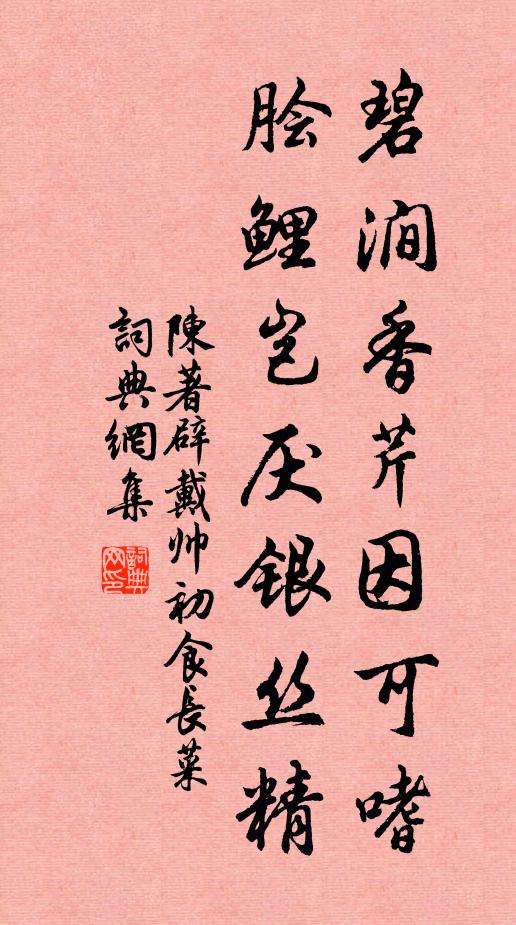 碧涧香芹因可嗜
脍鲤岂厌银丝精
陳著辟戴帅初食長菜
詞典網集
詞典網印